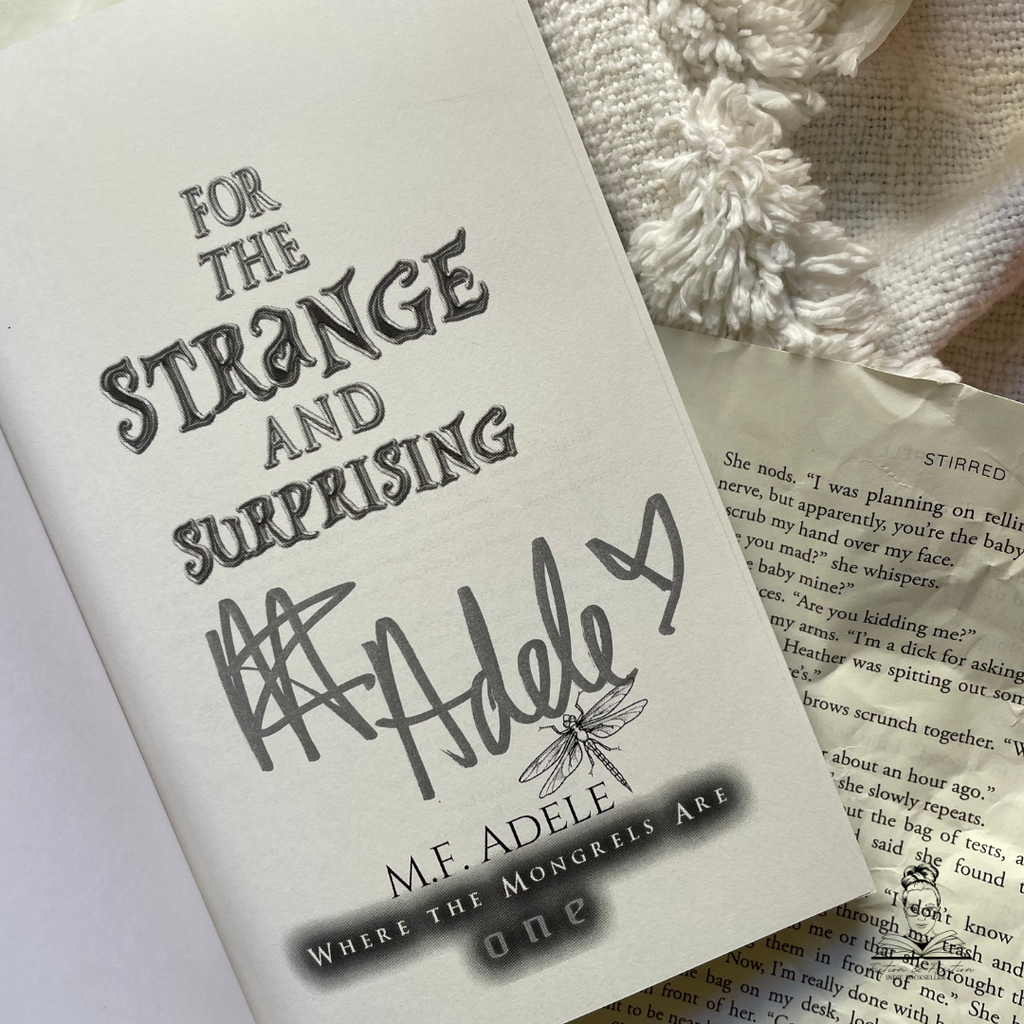 FOR
THE
STRANGE
AND
SURPRISING
Adele
M.F. ADELE
WHERE THE MONGRELS ARE
one
STIRRED
She nods. “I was planning on tellin
nerve, but apparently, you’re the baby
scrub my hand over my face.
e you mad?” she whispers.
e baby mine?”
ces. “Are you kidding me?”
my arms. “I’m a dick for asking
Heather was spitting out som
e’s.”
brows scrunch together. “W
about an hour ago.”
she slowly repeats.
out the bag of tests, a
said she found t
“I don’t know
through my trash and
o me or that she brought th
them in front of me.” She h
Now, I’m really done with
he bag on my desk, look
front of her.
nt to be near
INDIE BOOKSELLER